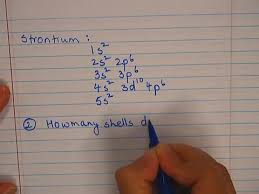 Strontium :
1s²
2s² 2p⁶
3s² 3p⁶
4s² 3d¹⁰ 4p⁶
5s²
② How many shells d